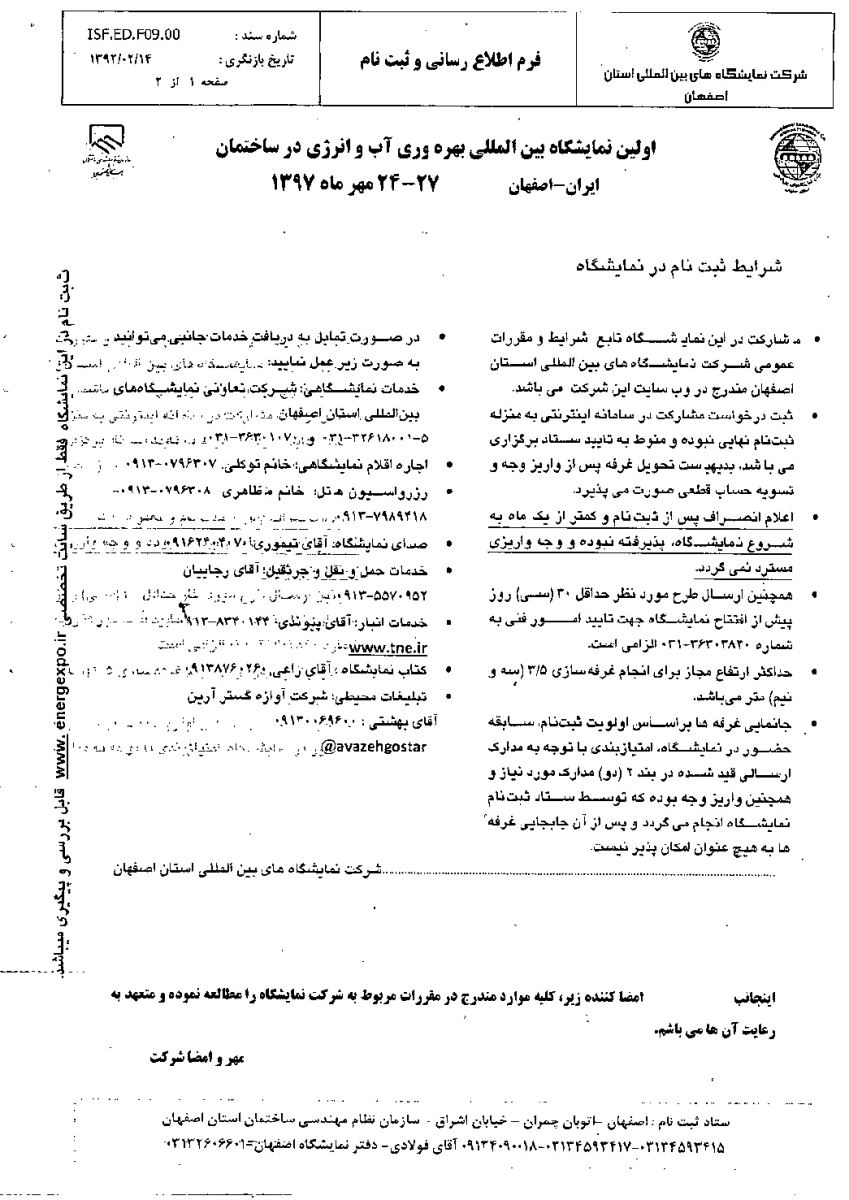 شرکت نمایشگاه های بین المللی استان
اصفهان
فرم اطلاع رسانی و ثبت نام
شماره سند : ISF.ED.F09.00
تاریخ بازنگری : ۱۳۹۲/۰۲/۱۴
صفحه ۱ از ۲
اولین نمایشگاه بین المللی بهره وری آب و انرژی در ساختمان
ایران-اصفهان ۲۷-۲۴ مهر ماه ۱۳۹۷
شرایط ثبت نام در نمایشگاه
• مشارکت در این نمایشگاه تابع شرایط و مقررات
عمومی شرکت نمایشگاه های بین المللی استان
اصفهان مندرج در وب سایت این شرکت می باشد.
• ثبت درخواست مشارکت در سامانه اینترنتی به منزله
ثبت‌نام نهایی نبوده و منوط به تایید ستاد برگزاری
می باشد، بدیهیست تحویل غرفه پس از واریز وجه و
تسویه حساب قطعی صورت می پذیرد.
• اعلام انصراف پس از ثبت‌نام و کمتر از یک ماه به
شروع نمایشگاه، پذیرفته نبوده و وجه واریزی
مسترد نمی گردد.
• همچنین ارسال طرح مورد نظر حداقل ۳۰ (سی) روز
پیش از افتتاح نمایشگاه جهت تایید امور فنی به
شماره ۳۶۳۰۳۸۲۰-۰۳۱ الزامی است.
• حداکثر ارتفاع مجاز برای انجام غرفه‌سازی ۳/۵ (سه و
نیم) متر می‌باشد.
• جانمایی غرفه ها براساس اولویت ثبت‌نام، سابقه
حضور در نمایشگاه، امتیازبندی با توجه به مدارک
ارسالی قید شده در بند ۲ (دو) مدارک مورد نیاز و
همچنین واریز وجه بوده که توسط ستاد ثبت‌نام
نمایشگاه انجام می گردد و پس از آن جابجایی غرفه
ها به هیچ عنوان امکان پذیر نیست.
• در صورت تمایل به دریافت خدمات جانبی می‌توانید
به صورت زیر عمل نمایید:
• خدمات نمایشگاهی: شرکت تعاونی نمایشگاه‌های
بین‌المللی استان اصفهان،
۰۳۱-۳۲۶۱۸۰۰۱-۵ و ۰۳۱-۳۶۳۰۱۰۷
• اجاره اقلام نمایشگاهی: خانم توکلی، ۰۹۱۳-۰۷۹۶۳۰۷
• رزرواسیون هتل: خانم مظاهری ۰۹۱۳-۰۷۹۶۳۰۸-
۹۱۳-۷۹۸۹۴۱۸
• صدای نمایشگاه: آقای تیموری
• خدمات حمل و نقل و جرثقیل: آقای رجاییان
۰۹۱۳-۵۵۷۰۹۵۲
• خدمات انبار: آقای پیوندی: ۰۹۱۳-۸۳۴۰۱۴۴
www.tne.ir
• کتاب نمایشگاه : آقای زاعی،
• تبلیغات محیطی: شرکت آوازه گستر آرین
آقای بهشتی :
@avazehgostar
شرکت نمایشگاه های بین المللی استان اصفهان
ثبت نام در این نمایشگاه فقط از طریق سایت تخصصی www. énergexpo.ir قابل بررسی و پیگیری میباشد.
اینجانب امضا کننده زیر، کلیه موارد مندرج در مقررات مربوط به شرکت نمایشگاه را مطالعه نموده و متعهد به
رعایت آن ها می باشم.
مهر و امضا شرکت
ستاد ثبت نام : اصفهان -اتوبان چمران - خیابان اشراق - سازمان نظام مهندسی ساختمان استان اصفهان
۰۳۱۳۴۵۹۳۴۱۵-۰۳۱۳۴۵۹۳۴۱۷-۰۹۱۳۴۰۹۰۰۱۸ آقای فولادی- دفتر نمایشگاه اصفهان=۰۳۱۳۲۶۰۶۶۰۱